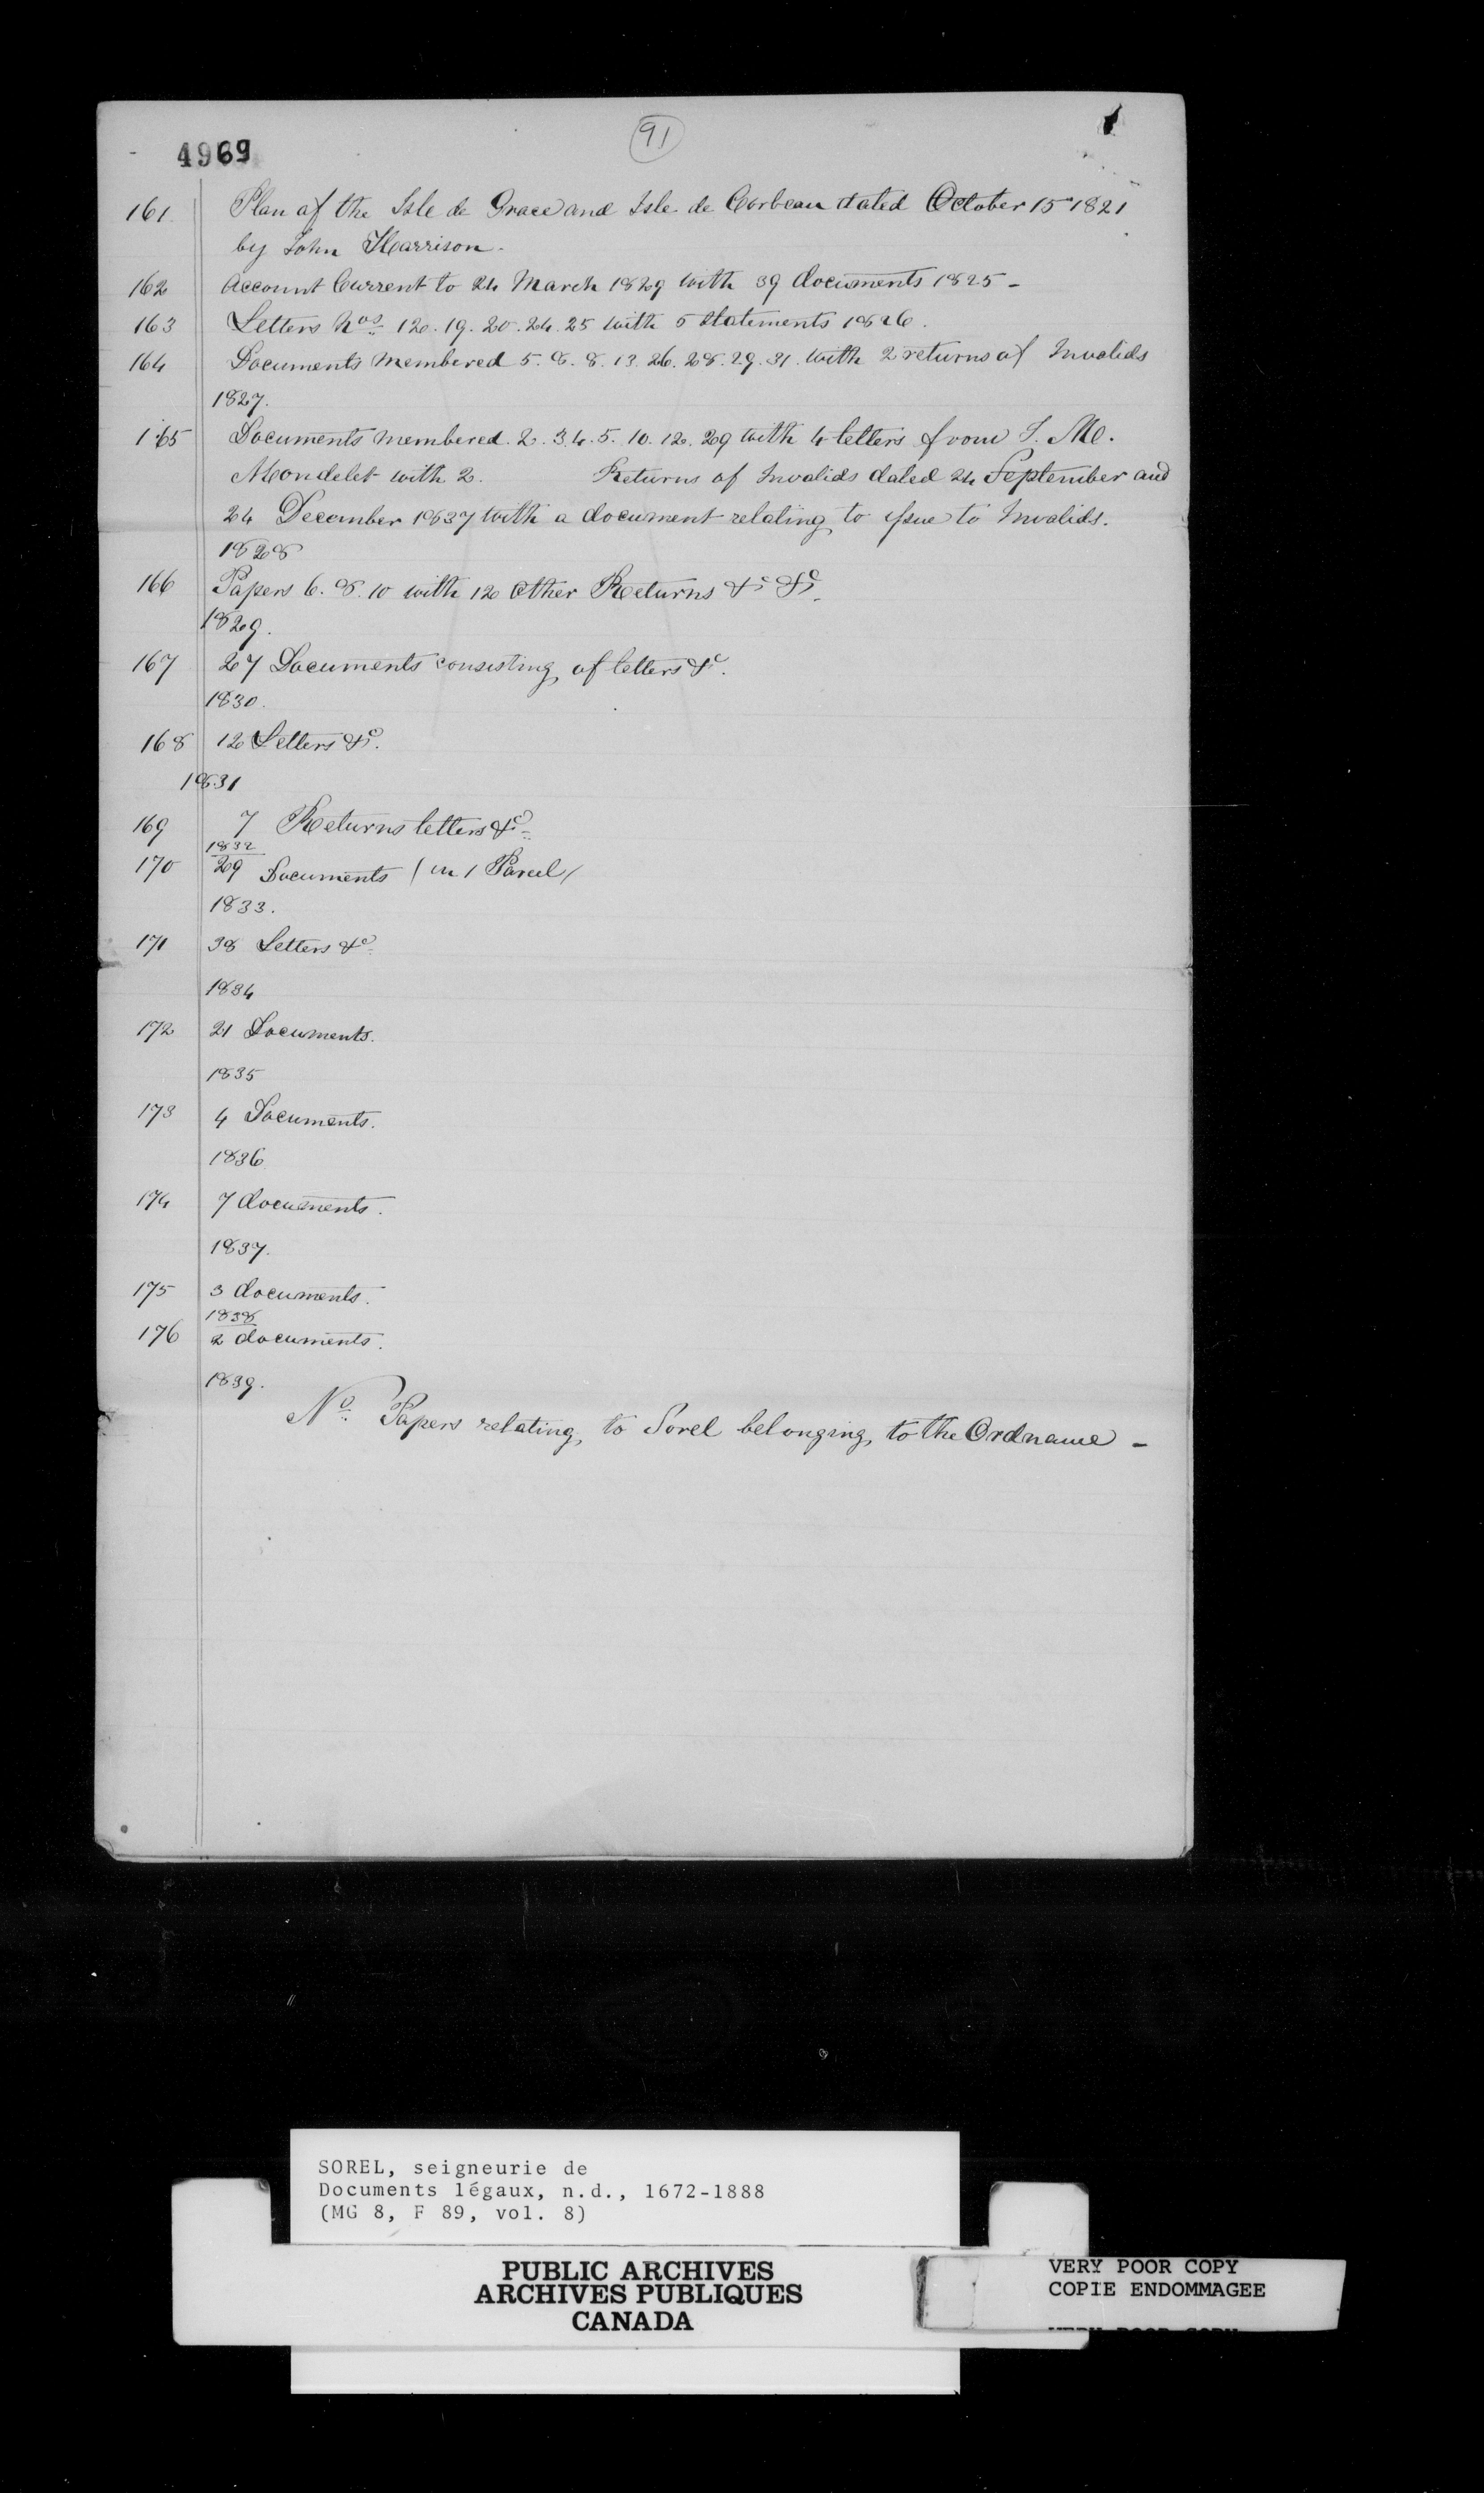 91
4969
161 Plan of the Isle de Grace and Isle de Corbeau dated October 15 1821
by John Harrison.
162 Account Current to 24 March 1829 with 39 documents 1825 -
163 Letters Nos. 12. 19. 20. 24. 25 with 5 Statements 1826.
164 Documents Membered 5. 8. 8. 13. 26. 28. 29. 31. with 2 returns of Invalids
1827.
165 Documents Membered. 2. 3. 4. 5. 10. 12. 29 with 4 letters from J. M.
Mondelet with 2. Returns of Invalids dated 24 September and
24 December 1837 with a document relating to issue to Invalids.
1828
166 Papers 6. 8. 10 with 12 Other Returns &c &c.
1829.
167 27 Documents consisting of letters &c.
1830.
168 12 Letters &c.
1831
169 7 Returns letters &c
1832
170 29 Documents (in 1 Parcel(
1833.
171 38 Letters &c
1834
172 21 Documents.
1835
173 4 Documents.
1836
174 7 documents.
1837.
175 3 documents.
1838
176 2 documents.
1839.
No. Papers relating to Sorel belonging to the Ordnance -
SOREL, seigneurie de
Documents légaux, n.d., 1672-1888
(MG 8, F 89, vol. 8)
PUBLIC ARCHIVES
ARCHIVES PUBLIQUES
CANADA
VERY POOR COPY
COPIE ENDOMMAGEE
VERY POOR COPY